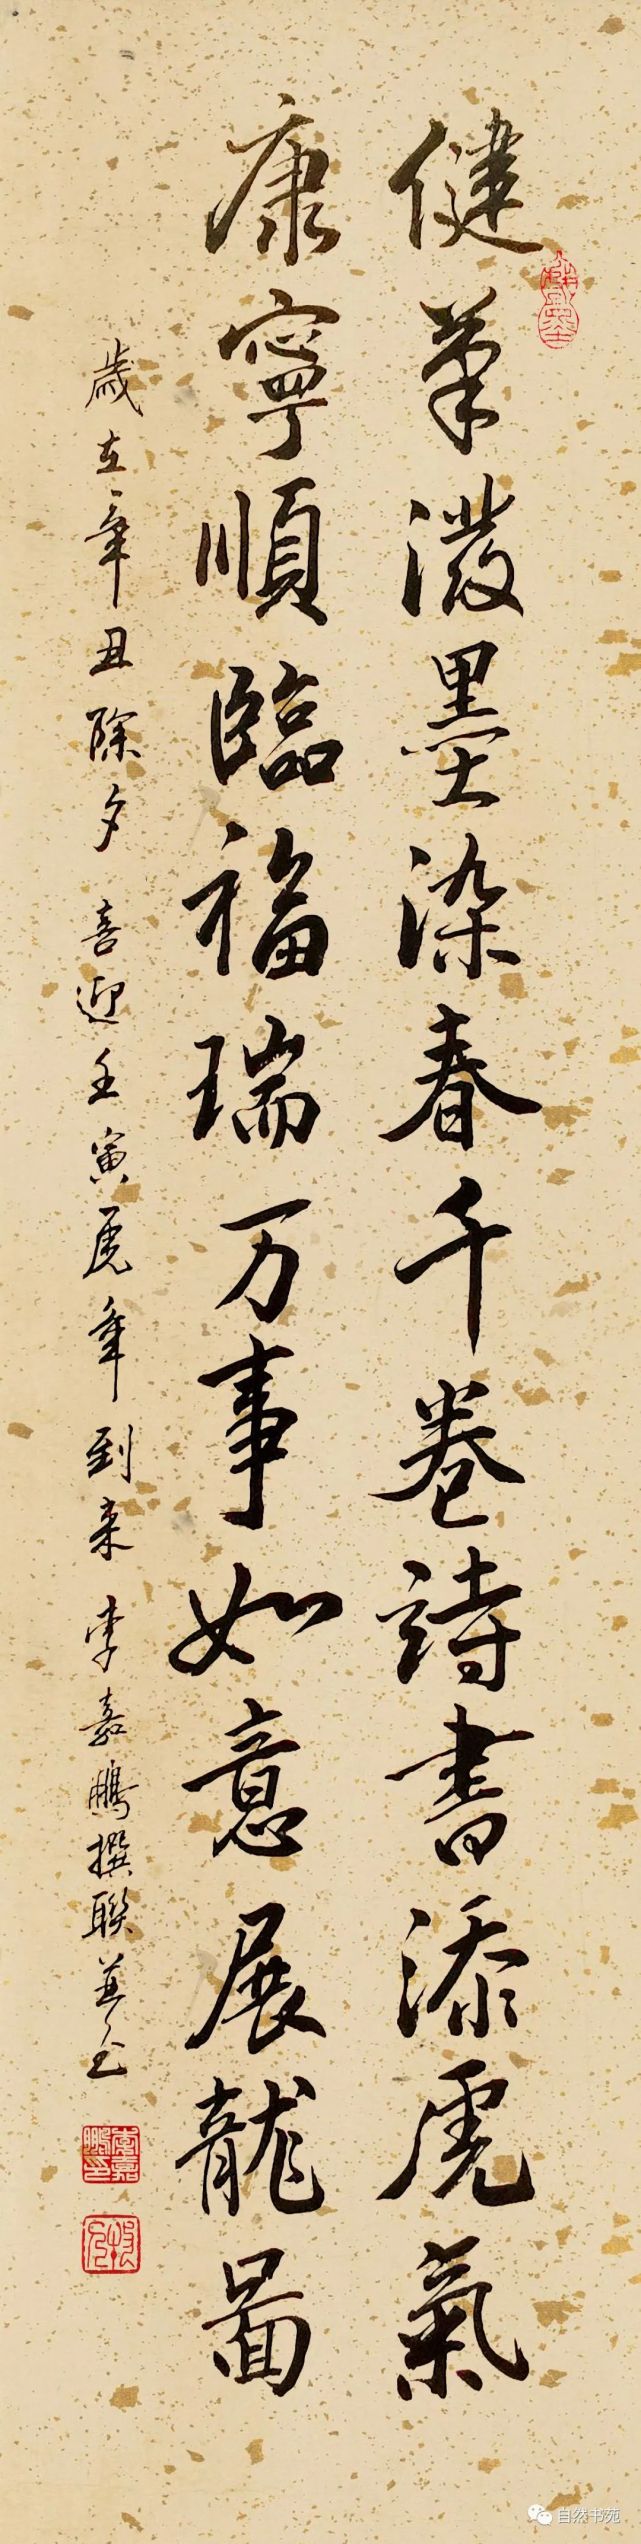 健筆潑墨染春千卷詩書添虎氣
康寧順臨福瑞万事如意展龍圖
歲在辛丑除夕喜迎壬寅虎年到来李嘉鵬撰聯并書
李嘉鵬印
自然书苑